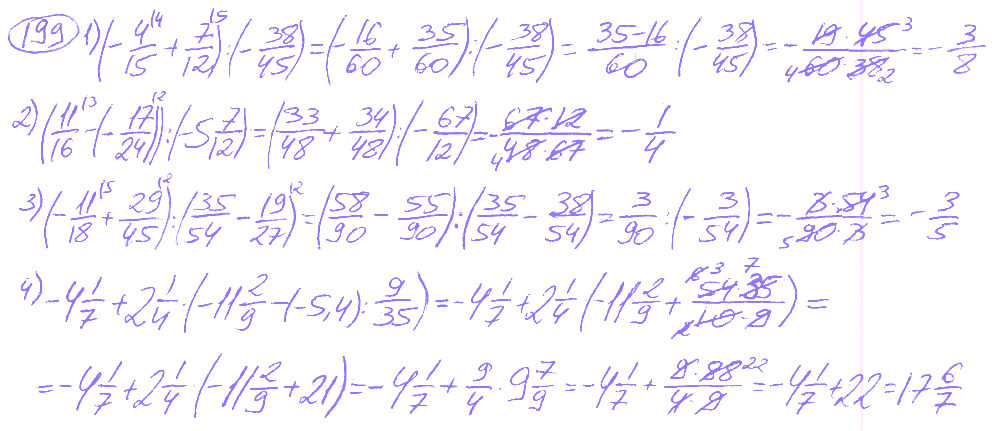 199 1) (-4/15^{14} + 7/12^{15}) : (-38/45) = (-16/60 + 35/60) : (-38/45) = (35-16)/60 : (-38/45) = -(19·45^3)/(4 60·38 2) = -3/8
2) (11/16^{13} - (-17/24)^{12}) : (-5 7/12) = (33/48 + 34/48) : (-67/12) = (67·12)/(4 48·67) = -1/4
3) (-11/18^{15} + 29/45^{12}) : (35/54 - 19/27^{12}) = (58/90 - 55/90) : (35/54 - 38/54) = 3/90 : (-3/54) = -(3·54^3)/(5 90·3) = -3/5
4) -4 1/7 + 2 1/4 · (-11 2/9 - (-5,4) : 9/35) = -4 1/7 + 2 1/4 (-11 2/9 + (54^{6 3}·35^7)/(2 10·9)) =
= -4 1/7 + 2 1/4 · (-11 2/9 + 21) = -4 1/7 + 9/4 · 9 7/9 = -4 1/7 + (9·88^{22})/(4·9) = -4 1/7 + 22 = 17 6/7